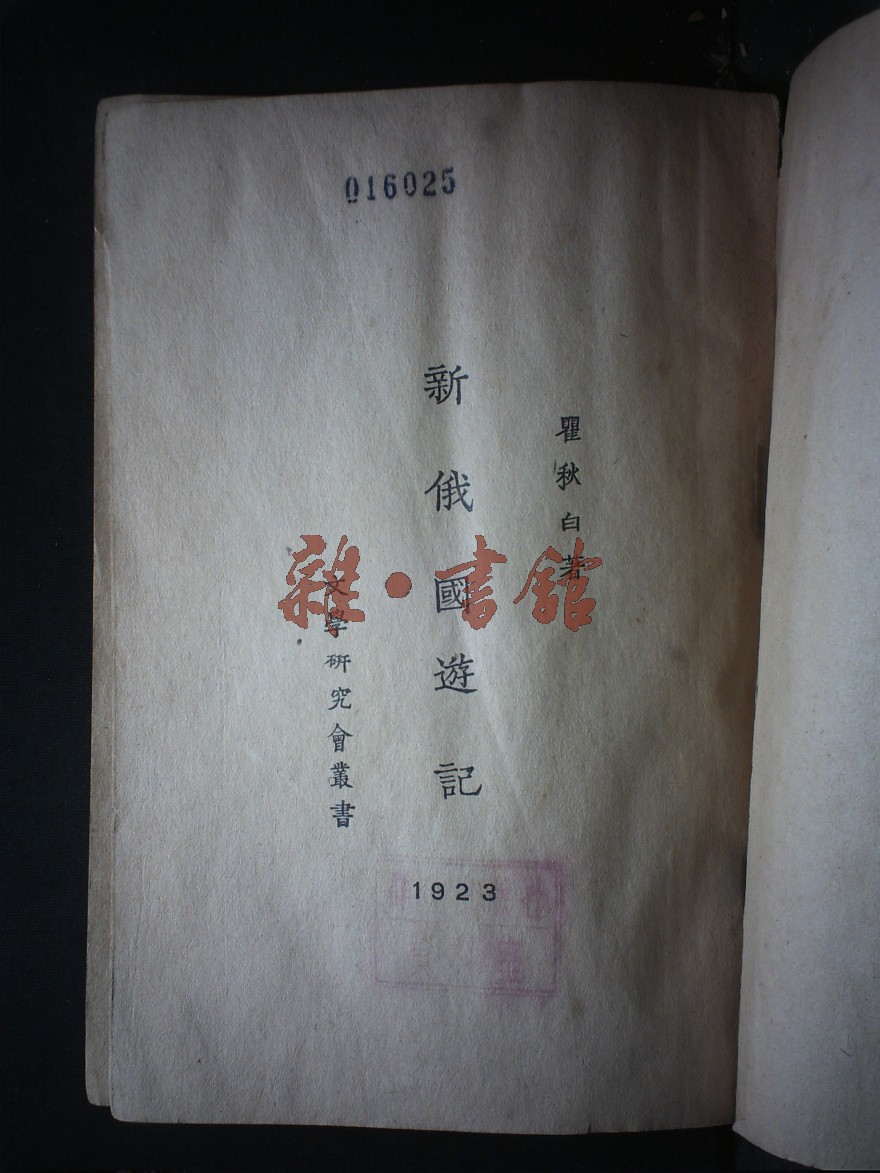 016025
瞿秋白著
新俄國遊記
文學研究會叢書
1923
雜·書館